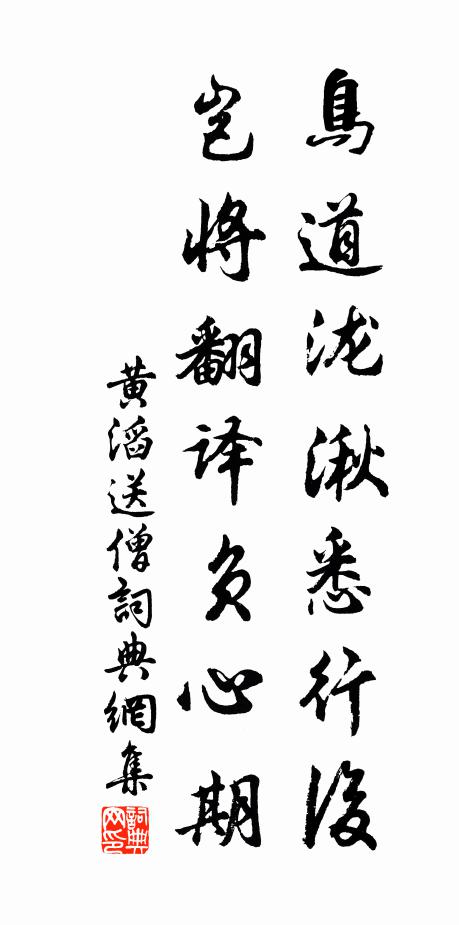 鳥道泷湫悉行後
岂將翻译负心期
黄滔送僧詞典網集
詞典网印